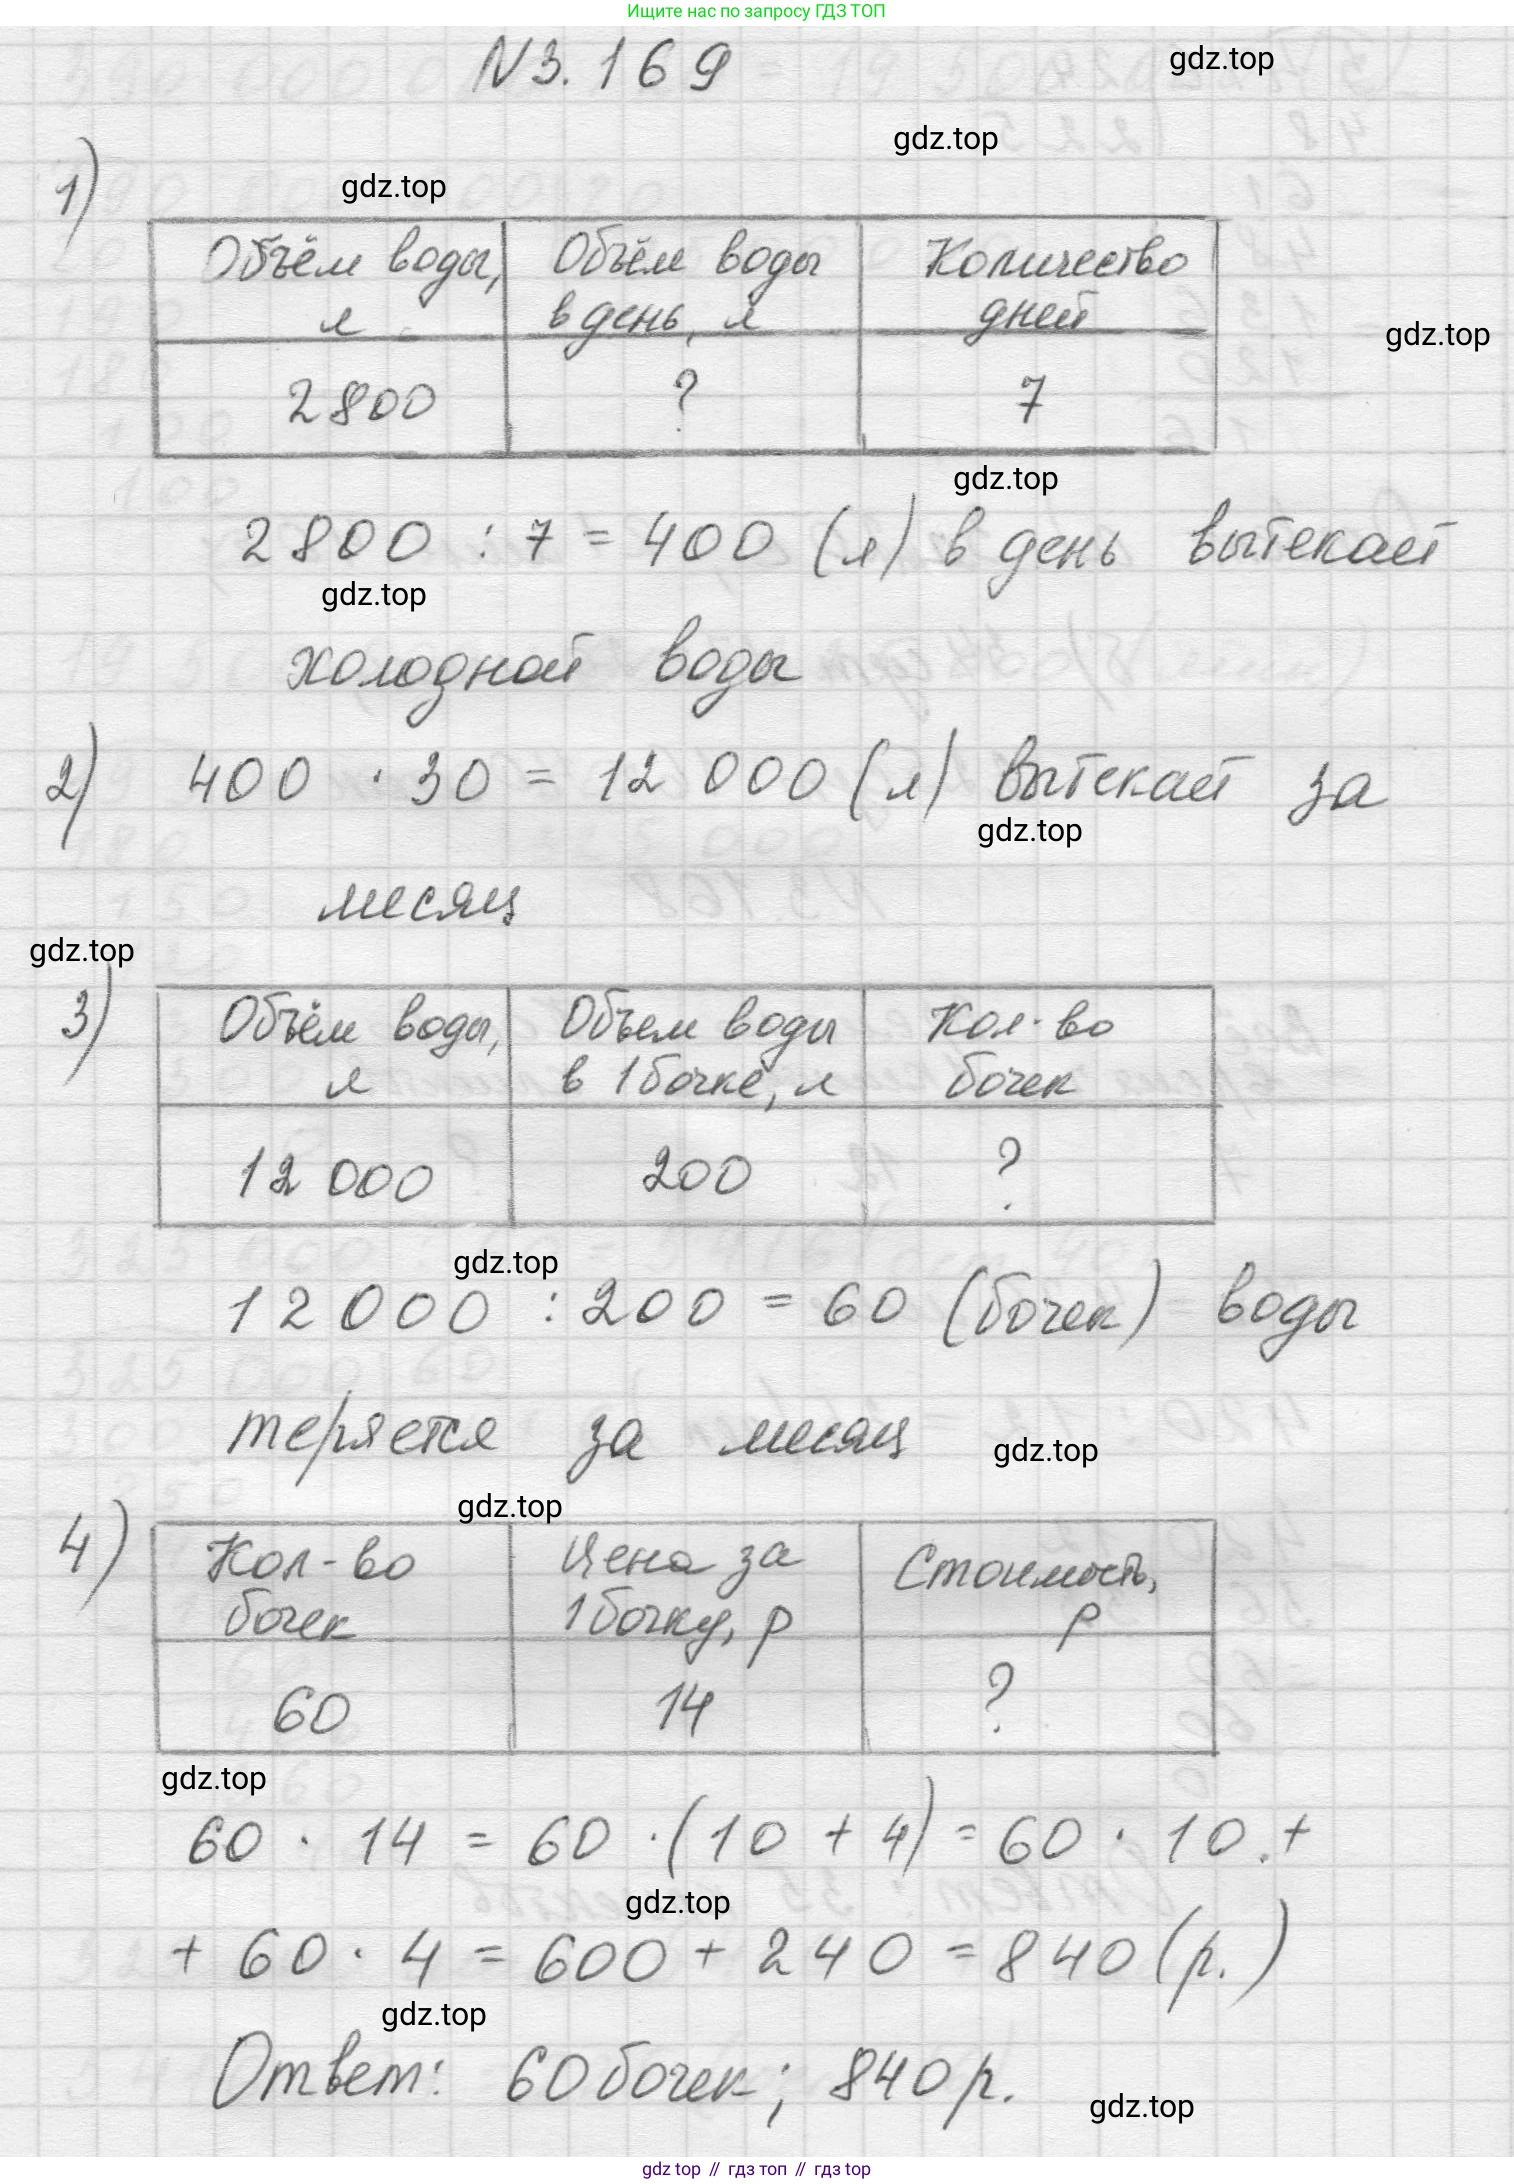 Ищите нас по запросу ГДЗ ТОП
N3.169
gdz.top
gdz.top
1)
gdz.top
Объём воды, л
Объём воды в день, л
Количество дней
gdz.top
2800
?
7
gdz.top
2800 : 7 = 400 (л) в день вытекает
gdz.top
холодной воды
2) 400 · 30 = 12 000 (л) вытекает за
gdz.top
месяц
gdz.top
3)
Объём воды, л
Объем воды в 1 бочке, л
Кол-во бочек
12 000
200
?
gdz.top
12000 : 200 = 60 (бочек) воды
теряется за месяц
gdz.top
gdz.top
4)
Кол-во бочек
Цена за 1 бочку, р
Стоимость, р
60
14
?
gdz.top
60 · 14 = 60 · (10 + 4) = 60 · 10 +
gdz.top
+ 60 · 4 = 600 + 240 = 840 (р.)
gdz.top
Ответ: 60 бочек; 840 р.
gdz.top
gdz top // гдз топ // гдз top